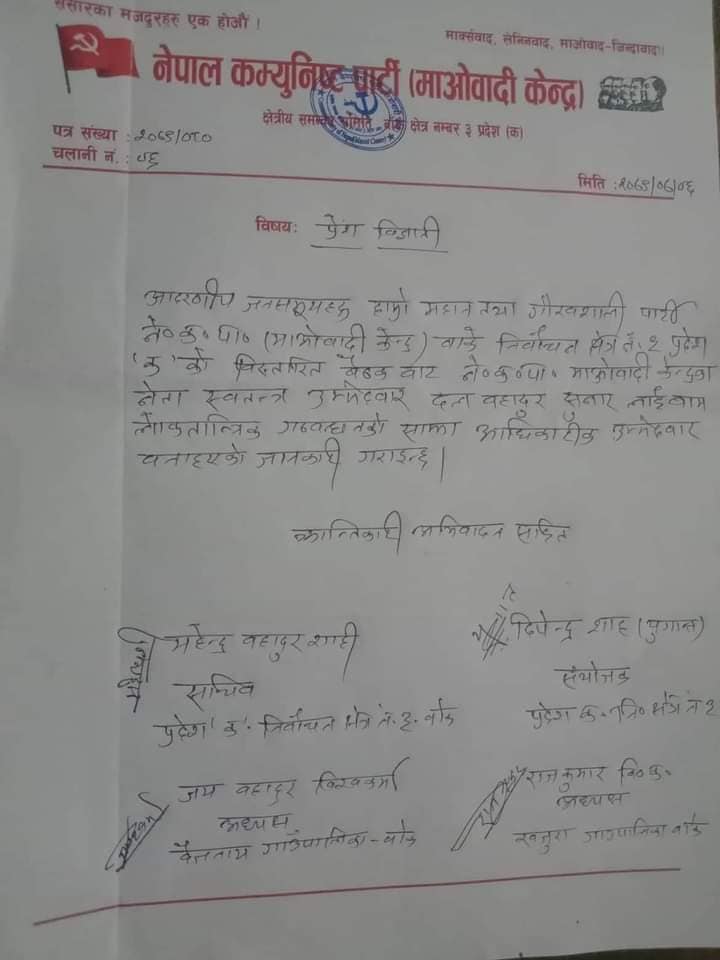 संसारका मजदुरहरु एक होऔं !
मार्क्सवाद, लेनिनवाद, माओवाद-जिन्दावाद।।
नेपाल कम्युनिष्ट पार्टी (माओवादी केन्द्र)
क्षेत्रीय समन्वय समिति, बाँके क्षेत्र नम्बर ३ प्रदेश (क)
पत्र संख्या : २०७९/०८०
चलानी नं. : ०६
मिति : २०७९/०७/०६
विषय: प्रेस विज्ञप्ती
आदरणीय जनसमूदायहरु हाम्रो महान तथा गौरवशाली पार्टी
ने०क०पा० (माओवादी केन्द्र) - बाँके निर्वाचन क्षेत्र नं. ३ प्रदेश
'क' को विस्तारित बैठक बाट ने०क०पा० माओवादी केन्द्रका
नेता स्वतन्त्र उम्मेदवार दल बहादुर सुनार लाई
लोकतान्त्रिक गठबन्धनको साझा आधिकारीक उम्मेदवार
जानकारी गराइन्छ।
क्रान्तिकारी अभिवादन सहित
महेन्द्र बहादुर शाही
सचिव
प्रदेश 'क' निर्वाचन क्षेत्र नं. ३ बाँके
दिपेन्द्र शाह
संयोजक
प्रदेश क. नि० क्षेत्र नं ३
जय बहादुर विश्वकर्मा
अध्यक्ष
बैजनाथ गाउँपालिका - बाँके
राजकुमार वि०क०
अध्यक्ष
खजुरा गाउँपालिका बाँके